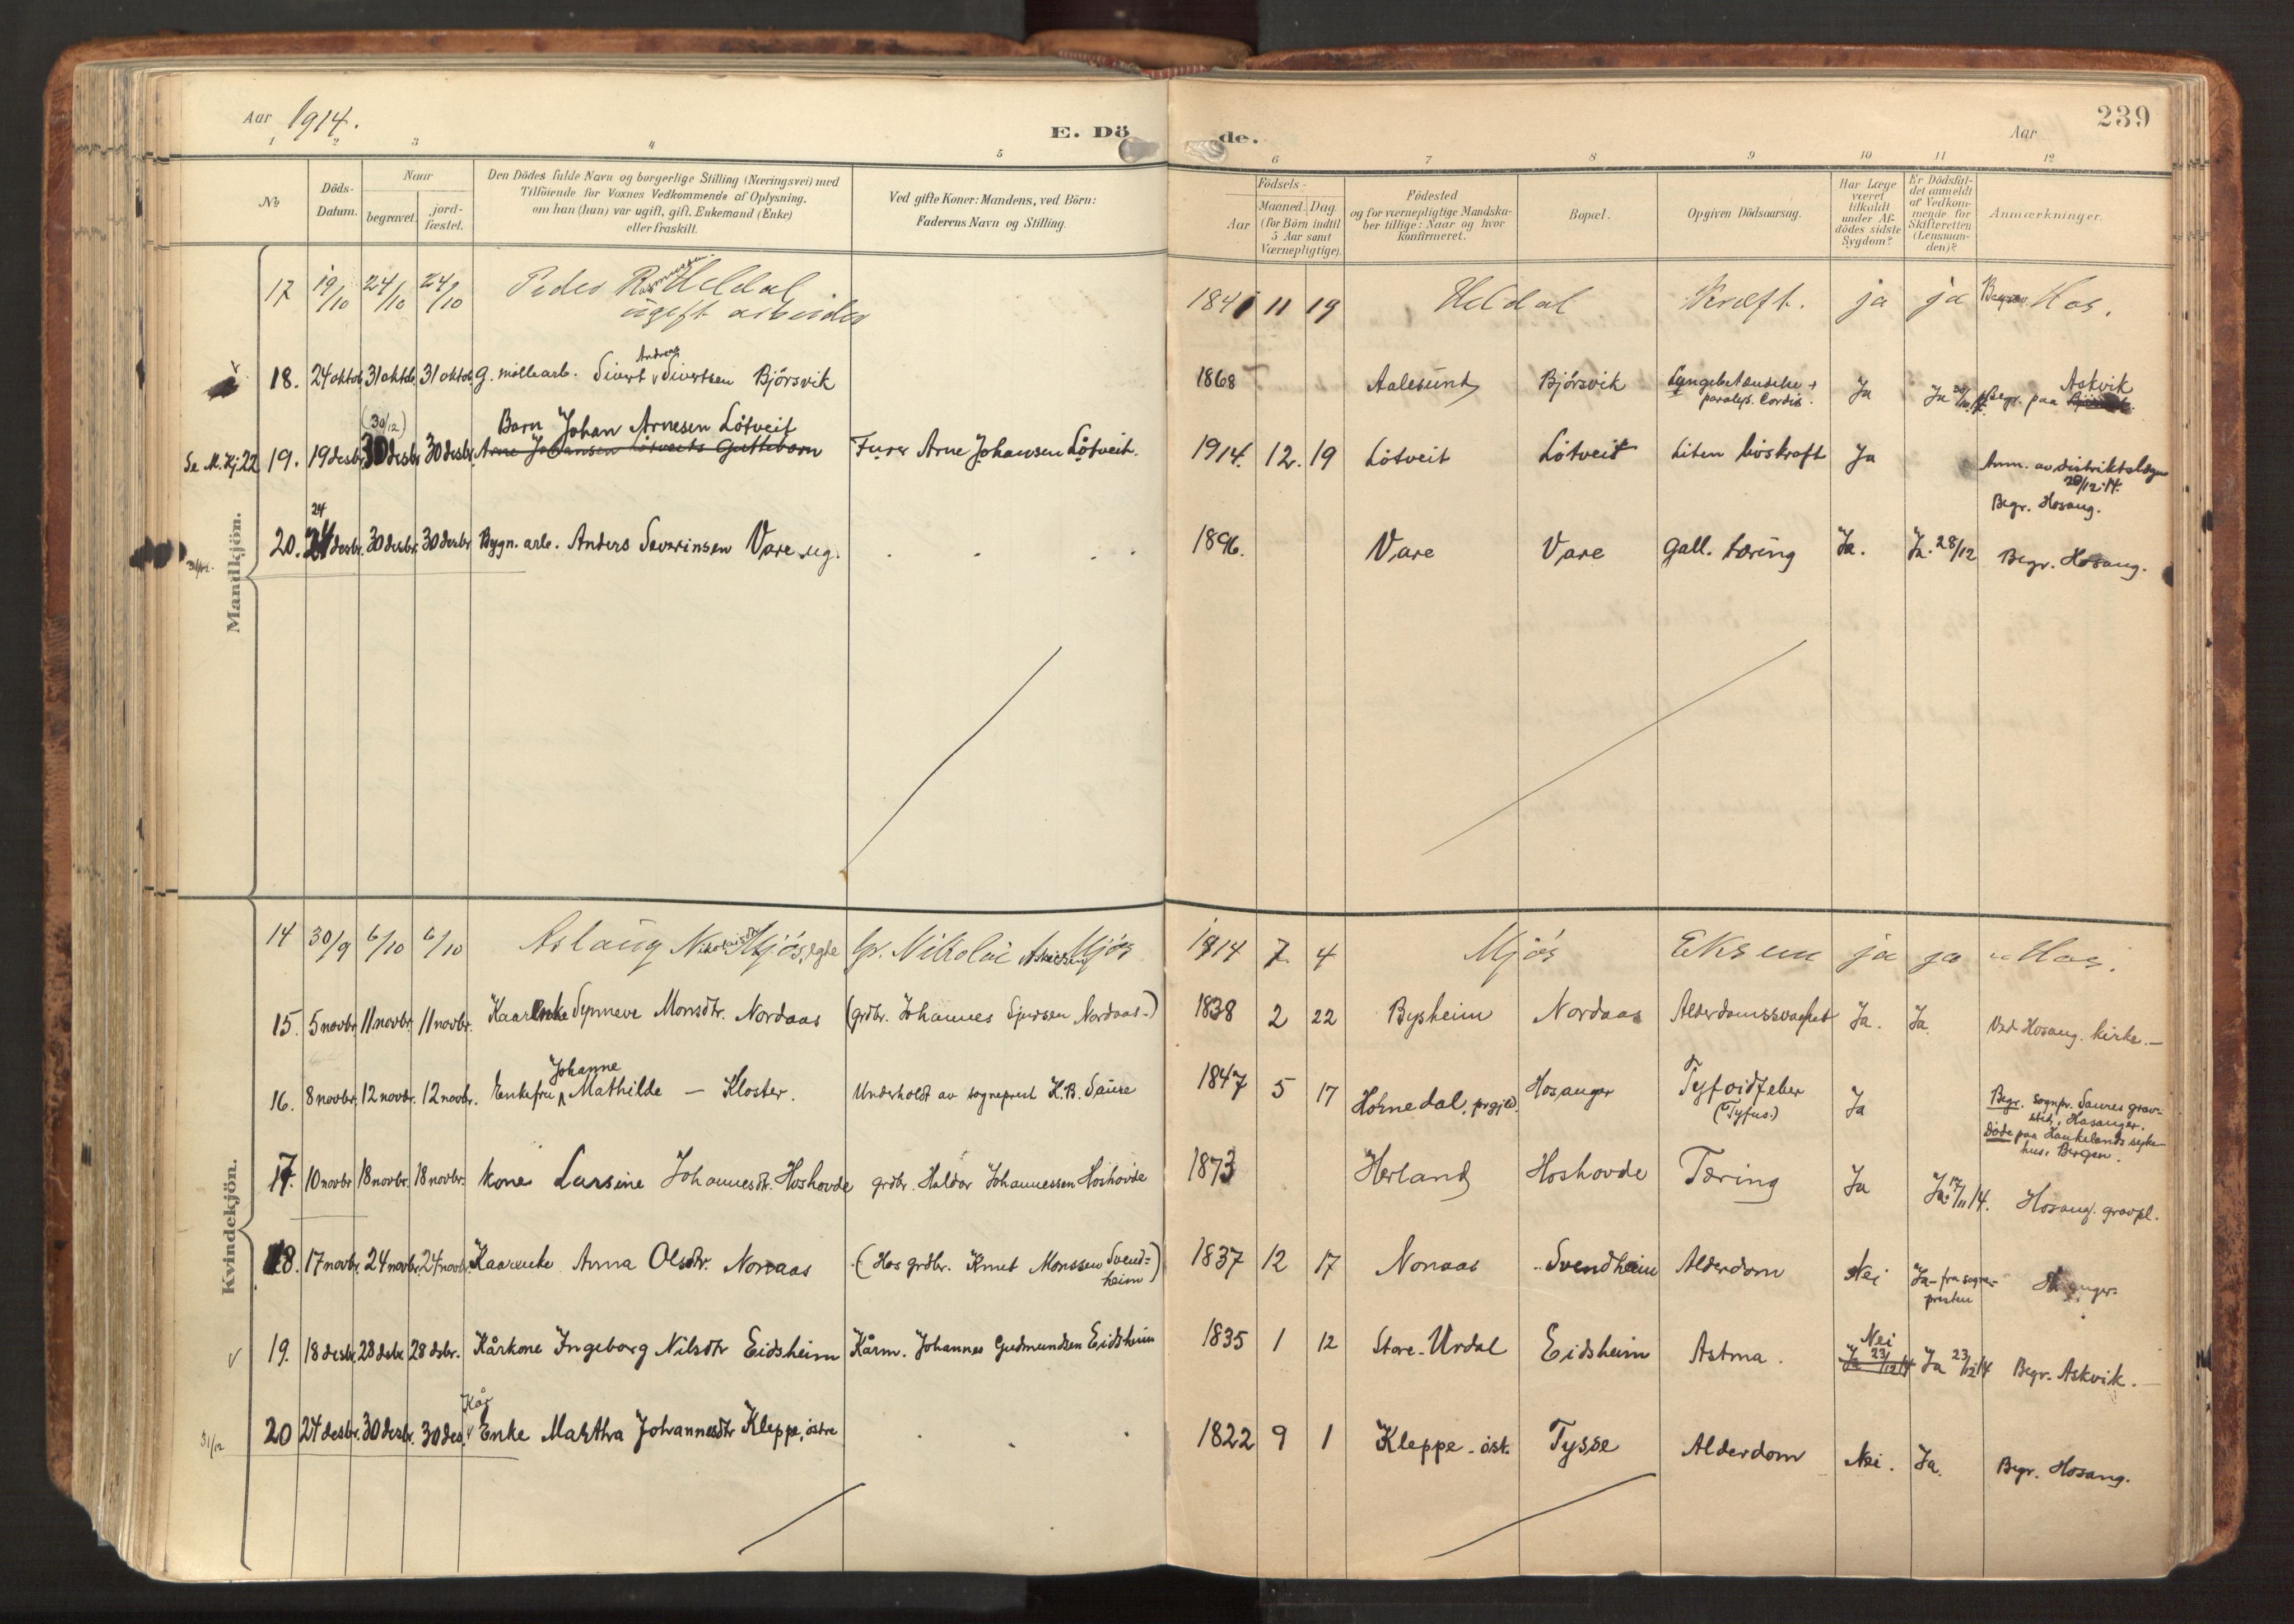 Aar 1914.
E. Dö
de.
Aar
239
1 2 3 4 5 6 7 8 9 10 11 12
№
Döds-
Datum.
Naar
begravet.
jord-
fæstet.
Den Dödes fulde Navn og borgerlige Stilling (Næringsvei) med
Tilföiende for Voxnes Vedkommende af Oplysning,
om han (hun) var ugift, gift, Enkemand (Enke)
eller fraskilt.
Ved gifte Koner: Mandens, ved Börn:
Faderens Navn og Stilling.
Födsels-
Aar
Maaned. Dag
(for Börn indtil
5 Aar samt
Værnepligtige).
Födested
og for værnepligtige Mandska-
ber tillige: Naar og hvor
konfirmeret.
Bopæl.
Opgiven Dödsaarsag.
Har Læge
været
tilkaldt
under Af-
dödes sidste
Sygdom?
Er Dödsfal-
det anmeldt
af Vedkom-
mende for
Skifteretten
(Lensman-
den)?
Anmærkninger.
Mandkjön.
17 19/10 24/10 24/10 Peder Rasmussen Heldal 1841 11 19 Heldal Kræft. ja ja Begrav. Hos.
ugift arbeider
Andreas
18. 24 oktob. 31 oktob. 31 oktob. g. møllearb. Sivert Sivertsen Bjørsvik 1868 Aalesund Bjørsvik Lungebetændelse + Ja Ja Begr. paa Askvik
paralys. Cordis.
(30/12)
Barn Johan Arnesen Løtveit
Se M. Kj 22 19. 19 desbr. 30 desbr. 30 desbr. Arne Johansen Løtveits Guttebarn Furer Arne Johansen Løtveit. 1914. 12. 19 Løtveit Løtveit Liten livskraft Ja Anm. av distriktslægen
29/12 14.
Begr. Hosang.
24
20. 24 desbr. 30 desbr. 30 desbr. Bygn. arb. Anders Severinsen Vare ug. 1896. Vare Vare Gall. tæring Ja. Ja. 28/12 Begr. Hosang.
31/12.
Kvindekjön.
14 30/9 6/10 6/10 Aslaug Nikolaisdtr Mjøs, egte Gr. Nikolai Askersen Mjøs 1914 7 4 Mjøs Eksem ja ja " Hos.
15. 5 novbr. 11 novbr. 11 novbr. Kaarenke Synneve Monsdtr. Nordaas (grdbr. Johannes Sjursen Nordaas-) 1838 2 22 Bysheim Nordaas Alderdomssvaghet Ja. Ja. Ved Hosang. kirke.—
Johanne
16. 8 novbr. 12 novbr. 12 novbr. Enkefru Mathilde — Kloster. Underholdt av sogneprest H.B. Saure 1847 5 17 Hornedal, prgjeld. Hosanger Tyfoidfeber Ja Begr. sognpr. Saures grav-
(Tyfus.)
sted, Hosanger.
Døde paa Haukelands syke-
hus, Bergen.
17. 10 novbr 18 novbr. 18 novbr. kone Larsine Johannesdtr. Hoshovde grdbr. Haldor Johannessen Hoshovde 1873 Herland Hoshovde Tæring Ja Ja. 17/11 14. Hosang. gravpl.
18. 17 novbr. 24 novbr. 24 novbr. Kaarenke Anna Olsdtr. Nonaas (Hos grdbr. Knut Monssen Svend-
heim)
1837 12 17 Nonaas Svendheim Alderdom Nei Ja - fra sogne-
presten
19. 18 desbr. 28 desbr. 28 desbr. Kårkone Ingeborg Nilsdtr Eidsheim Kårm. Johannes Gudmundsen Eidsheim 1835 1 12 Store-Urdal Eidsheim Astma. Nei Ja 23/12 14 Ja 23/12 14 Begr. Askvik.
Kår
31/12 20 24 desbr. 30 desbr. 30 des. Enke Marthra Johannesdtr Kleppe, østre 1822 9 1 Kleppe - øst. Tysse Alderdom Nei. Ja. Begr. Hosang.